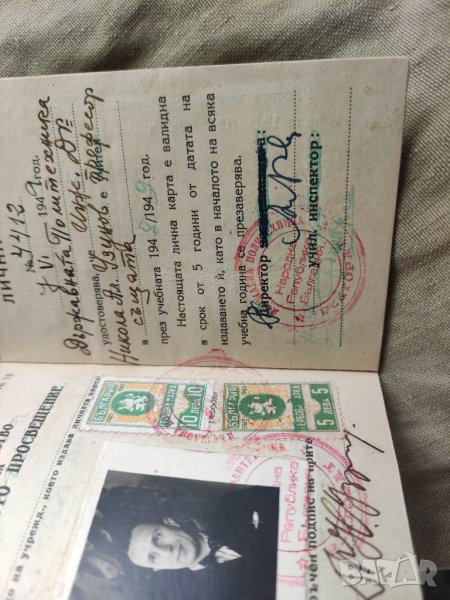 ЛИЧНА
№ 4412
1 VI 1949 год.
Държавната Политехника
удостоверява, че Инж. Др.
Никола Ал. Узунов е професор
в същата
през учебната 1948/1949 год.
Настоящата лична карта е валидна
в срок от 5 години от датата на
издаването ѝ, като в началото на всяка
учебна година се презаверява.
Директор
Учил. инспектор:
Народна
Република
България
ТО ПРОСВЕЩЕНИЕ
то на учрежд., което издава личната карта
БЪЛГАРИЯ
10 ЛЕВА 10
БЪЛГАРИЯ
5 ЛЕВА 5
Народна
Република
ръчен подпис на прите
BAZAR